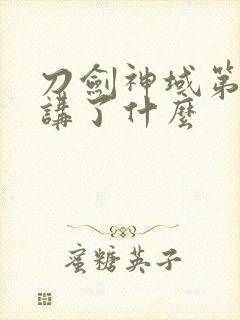 刀劍神域第
講了什麼
蜜糖英子